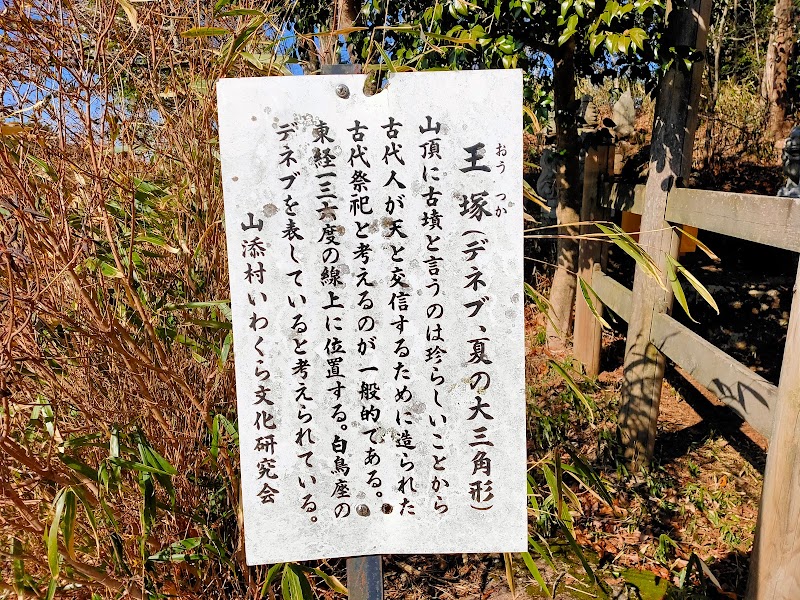 王塚（デネブ、夏の大三角形）
おうつか
山頂に古墳と言うのは珍らしいことから
古代人が天と交信するために造られた
古代祭祀と考えるのが一般的である。
東経一三六度の線上に位置する。白鳥座の
デネブを表していると考えられている。
山添村いわくら文化研究会